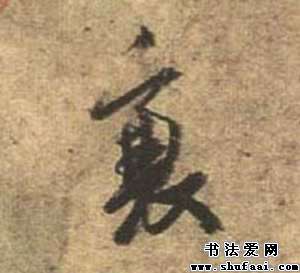 裏
书法爱网
www.shufaai.com